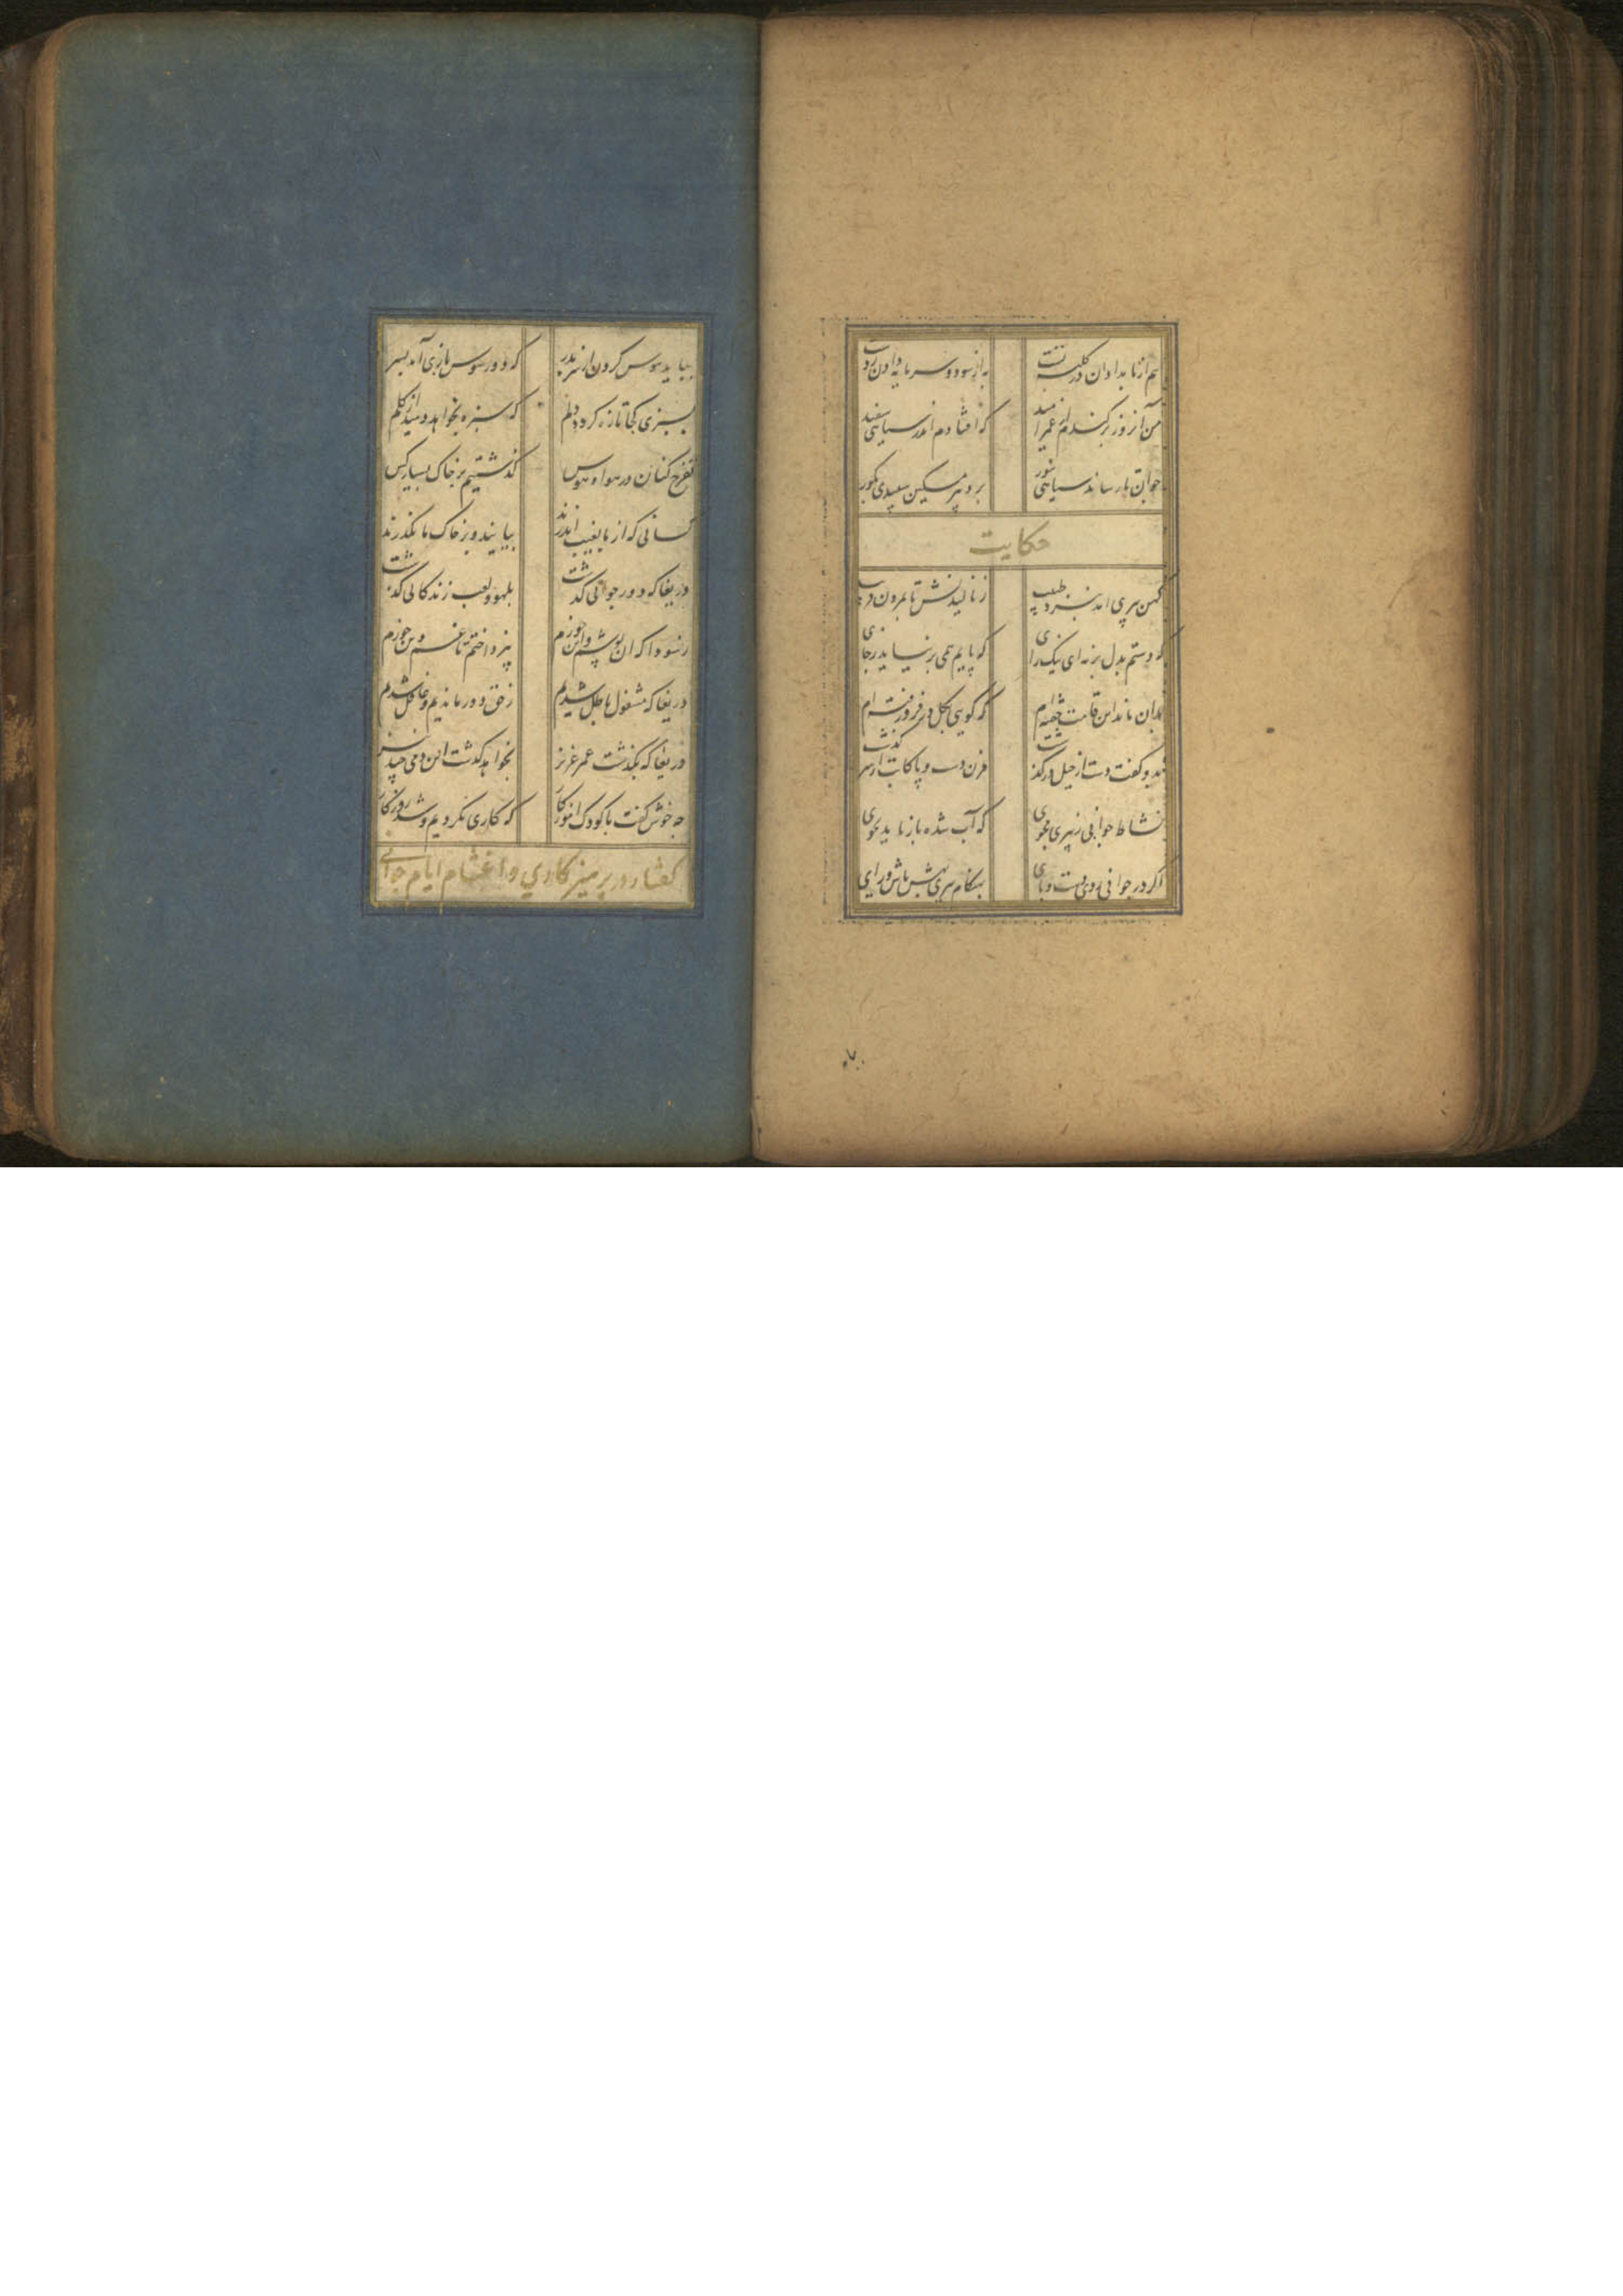 هم از بامدادان در کلبه بست به از سود و سرمایه دادن ز دست
من آن روز برکندم از عمر امید که افتادم اندر سیاهی سفید
جوان تا رساند سیاهی بنور برد پیر مسکین سپیدی بگور
حکایت
کهن پیری آمد بنزد طبیب ز نالیدنش تا بمردن قریب
که دستم بدل بر نه ای نیک رای که پایم همی بر نیاید ز جای
بدان ماند این قامت خفته ام که گویی بگل در فرو رفته ام
بدو گفت دست از دست و پا کابت از سر گذشت
نشاط جوانی ز پیری مجوی که آب شده باز ناید بجوی
اگر در جوانی زدی دست و پای بهنگام پیری بهش باش و رای
بباید هوس کردن از سر بدر که دور هوس بازی آمد بسر
بسبزی کجا تازه گردد دلم که سبزه بخواهد دمید از گلم
تفرج کنان در هوا و هوس گذشتیم بر خاک بسیار کس
کسانی که از ما بغیب اندرند بیایند و بر خاک ما بگذرند
دریغا که دور جوانی گذشت بلهو و لعب زندگانی گذشت
ز سودا که آن پوشم و این خورم نپرداختم تا غم دین خورم
دریغا که مشغول باطل شدیم ز حق دور ماندیم و غافل شدیم
دریغا که بگذشت عمر عزیز بخواهد گذشت این دمی چند نیز
چه خوش گفت با کودک آموزگار که کاری نکردیم و شد روزگار
گفتار در پرهیز کاری و اغتنام ایام جوانی